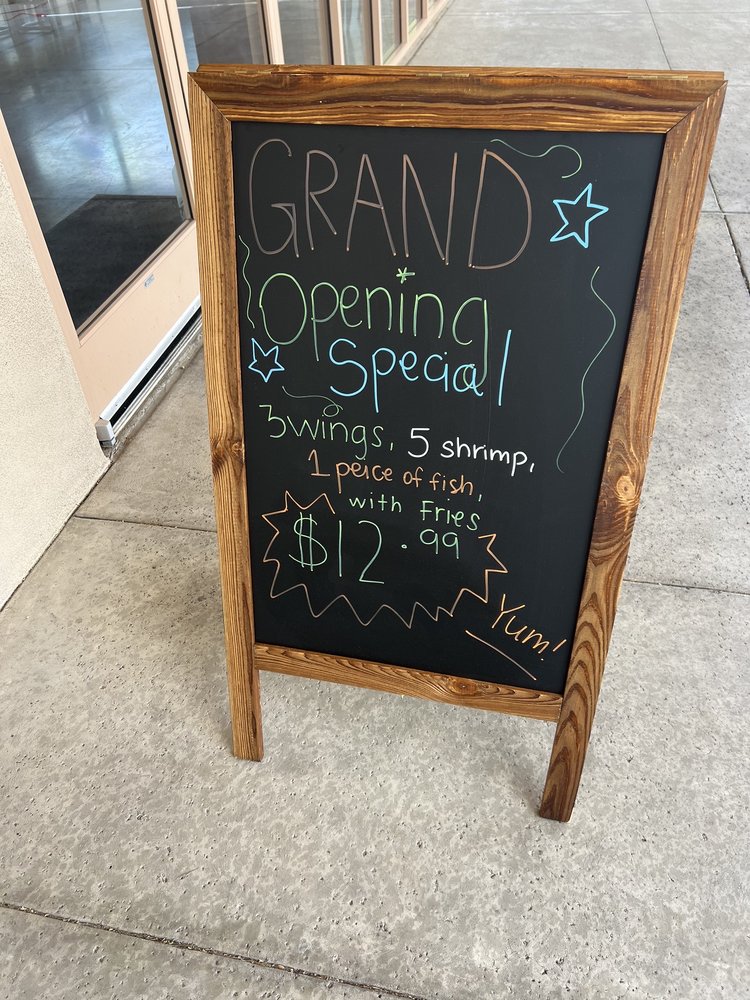 GRAND
Opening
Special
3 wings, 5 shrimp,
1 peice of fish,
with Fries
$12.99
Yum!